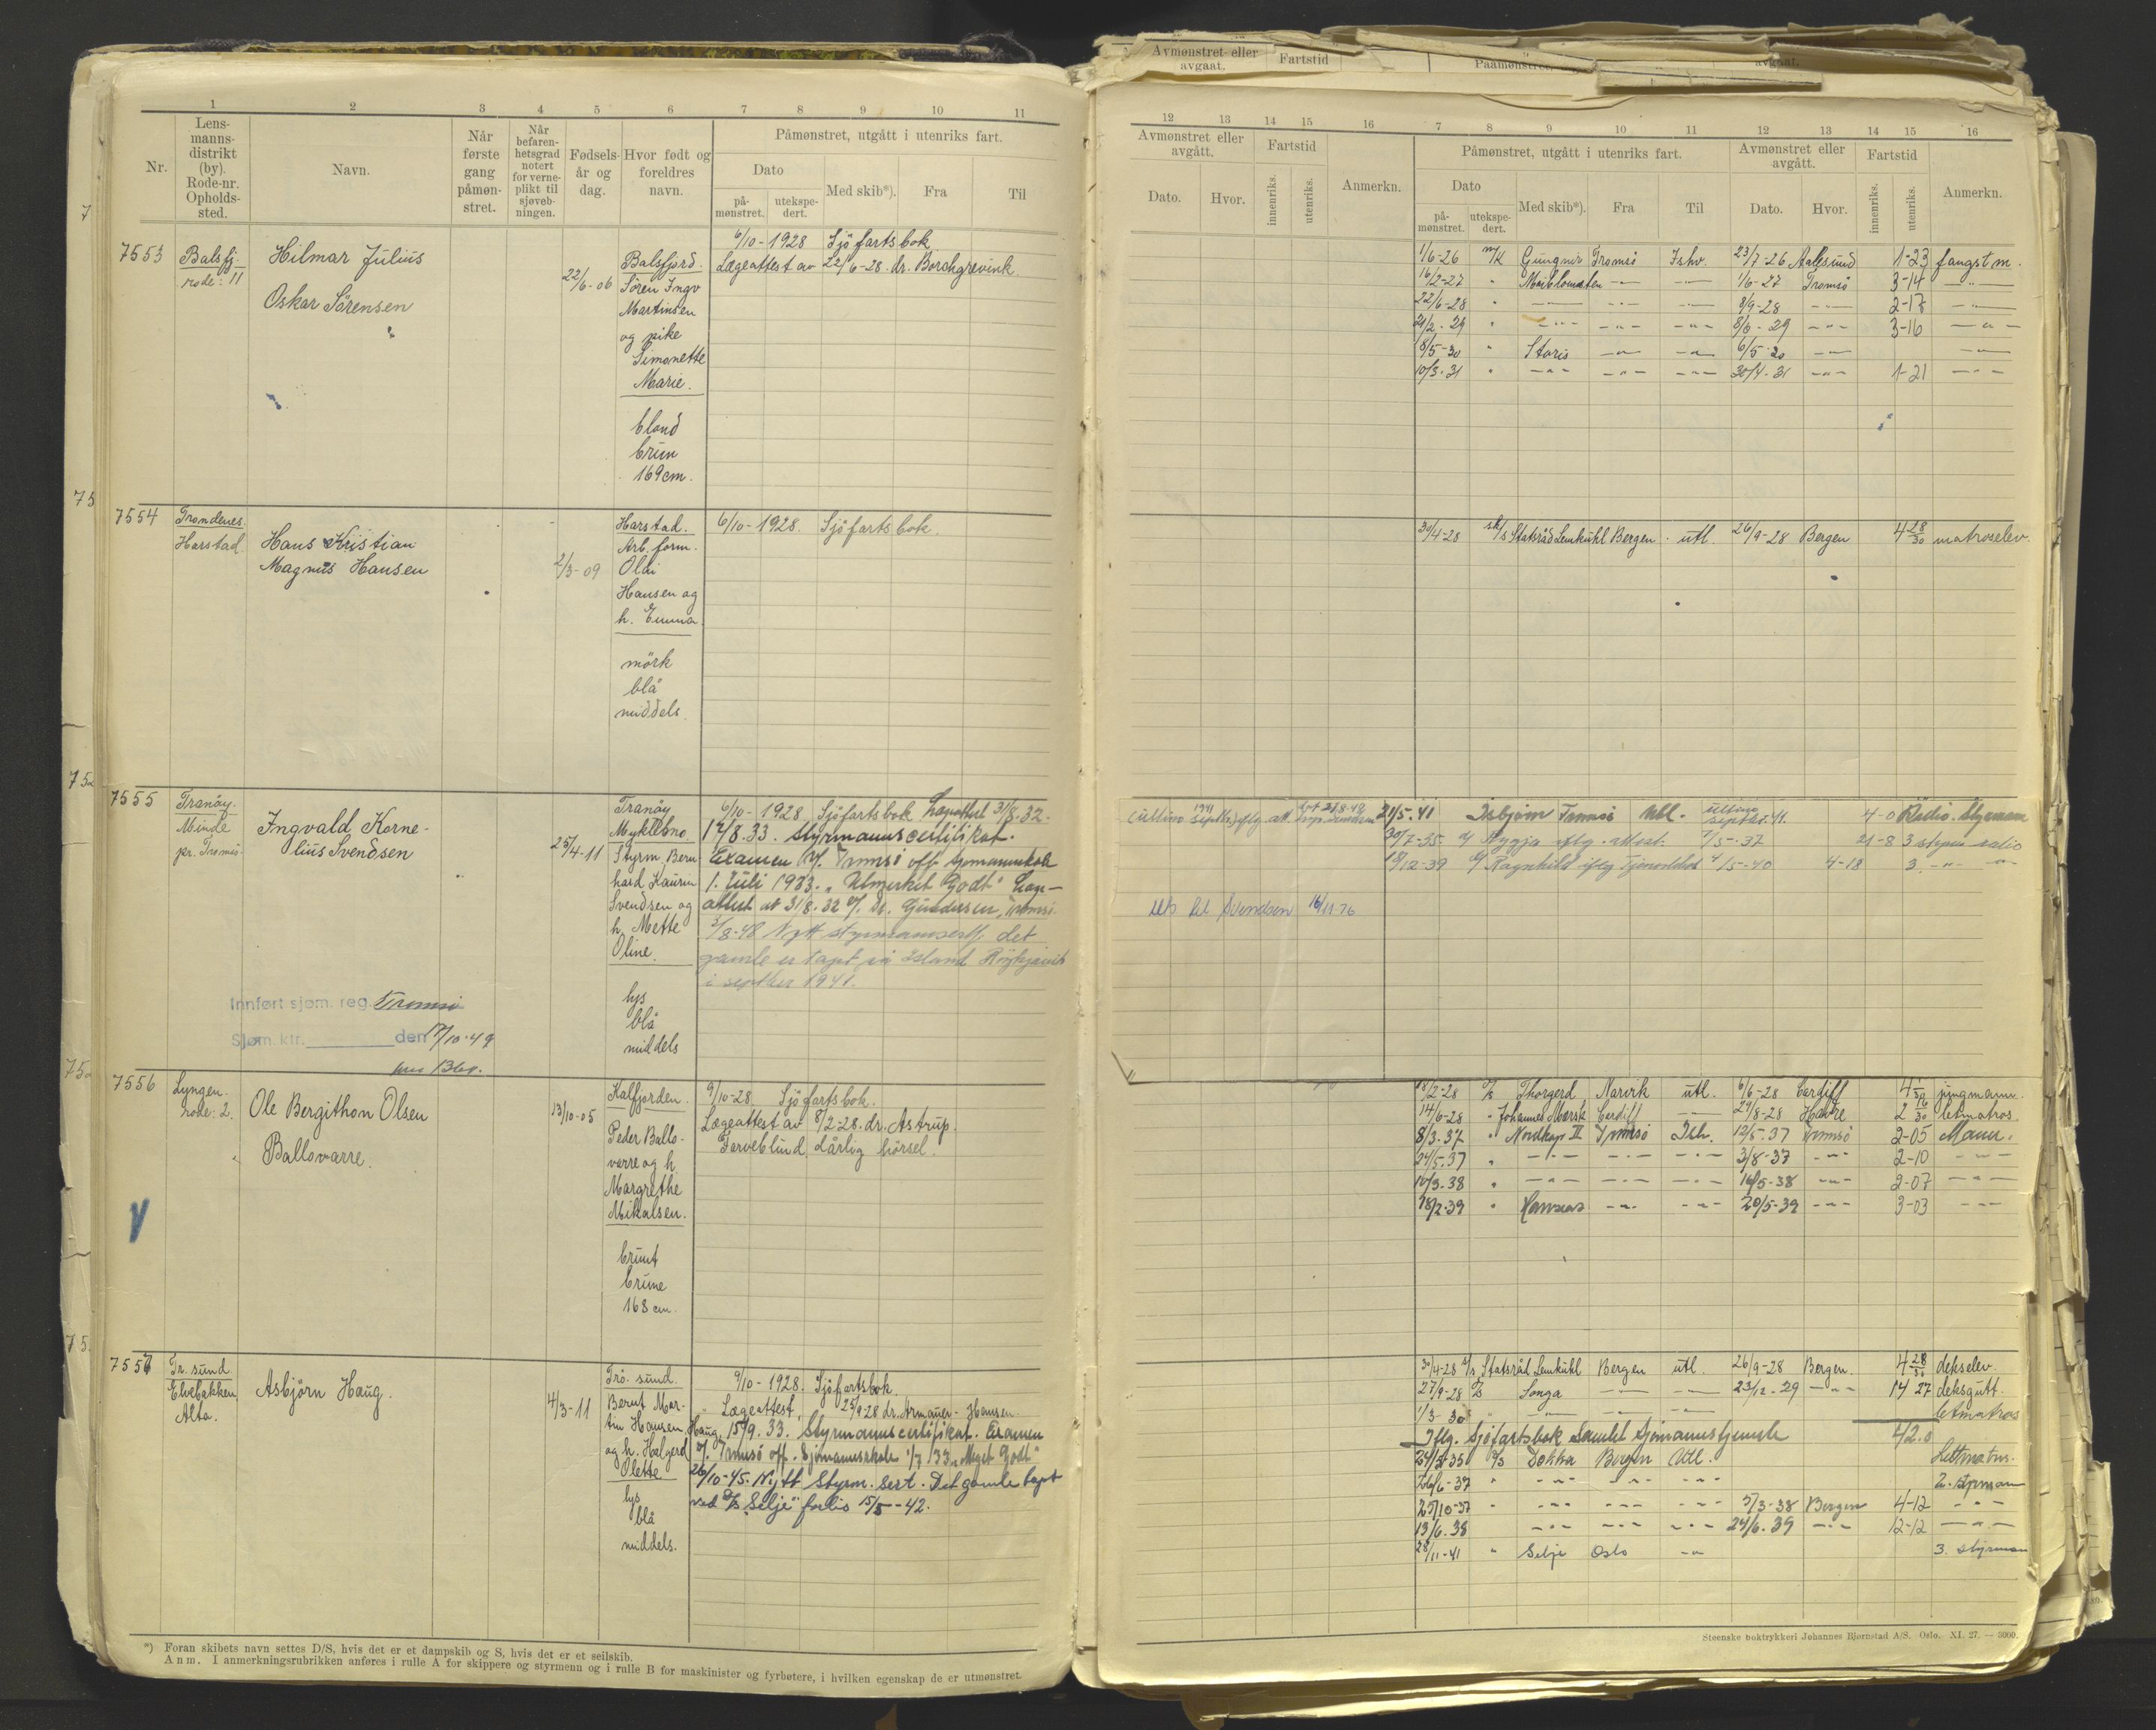 Avmønstret eller avgaat.
Fartstid
1 2 3 4 5 6 7 8 9 10 11
Nr.
Lensmanns-distrikt (by). Rode-nr. Opholds-sted.
Navn.
Når første gang påmøn-stret.
Når befaren-hetsgrad notert for verne-plikt til sjøveb-ningen.
Fødsels-år og dag.
Hvor født og foreldres navn.
Påmønstret, utgått i utenriks fart.
Dato
på-mønstret.
utekspe-dert.
Med skib*).
Fra
Til
7553
Balsfj.
rode: 11
Hilmar Julius
Oskar Sörensen
22/6-06
Balsfjord.
Sören Ingv
Martinsen
og pike
Simonette
Marie.
blond
brun
169 cm.
6/10-1928 Sjöfartsbok
Lægeattest av 22/6-28. dr. Borchgrevink
7554
Trondenes.
Harstad
Hans Kristian
Magnus Hansen
2/3-09
Harstad.
Arb. form.
Olai
Hansen og
h. Emma.
mörk
blå
middels.
6/10-1928. Sjöfartsbok.
7555
Tranöy.
Minde
pr. Tromsö
Ingvald Korne-
lius Svendsen
25/4-11
Tranöy
Myklebno
Styrm. Bern
hard Kaurin
Svendsen og
h. Mette
Oline.
lys
blå
middels
6/10-1928 Sjöfartsbok 31/8.32.
17/8.33. Styrmannscertifikat.
Examen v/. Tromsö off. sjömannsskole
1. Juli 1933. "Utmerket Godt" Læge-
attest at 31/8.32 v/. Dr. Gundersen, Tromsö.
3/8-48 Nytt styrmannssertf. det
gamle er tapt på Island Röykjavik
i septber 1941.
Innført sjøm. reg. Tromsö
Sjøm. ktr. den 17/10-49
7556
Lyngen.
rode: 2.
Ole Bergithon Olsen
Ballovarre.
13/10-05
Kalfjorden.
Peder Ballo-
varre og h.
Margrethe
Mikalsen.
brunt
brune
168 cm.
9/10-28. Sjöfartsbok.
Lægeattest av 8/2-28. dr. Astrup.
Farveblind, dårlig hörsel.
7557
Tr. sund
Elvebakken
Alta.
Asbjörn Haug.
4/3-11
Trö. sund.
Bernt Mar-
tin Hansen Haug,
og h. Halgerd
Olette
lys
blå
middels.
9/10-1928. Sjöfartsbok.
Lægeattest, 25/9-28 dr. Armauer-Hansen
15/9.33. Styrmannscertifikat. Examen
v/. Tromsö off. Sjömannsskole 1/7 33 "Meget Godt"
26/10-45. Nytt Styrm. sert. Det gamle tapt
ved D/S "Selje" forlis 15/5-42.
*) Foran skibets navn settes D/S, hvis det er et dampskib og S, hvis det er et seilskib.
Anm. I anmerkningsrubrikken anføres i rulle A for skippere og styrmenn og i rulle B for maskinister og fyrbøtere, i hvilken egenskap de er utmønstret.
12 13 14 15 16 7 8 9 10 11 12 13 14 15 16
Avmønstret eller avgått.
Fartstid
Dato.
Hvor.
innenriks.
utenriks.
Anmerkn.
Påmønstret, utgått i utenriks fart.
Dato
på-mønstret.
utekspe-dert.
Med skib*).
Fra
Til
Avmønstret eller avgått.
Dato.
Hvor.
Fartstid
innenriks.
utenriks.
Anmerkn.
1/6-26 m/k Gungner Tromsö Ishv. 23/7-26 Aalesund 1-23 fangstm.
16/2-27 " Maiblomsten -"- -"- 1/6-27 Tromsö 3-14 -"-
22/6-28 " -"- -"- -"- 8/9-28 -"- 2-17 -"-
21/2-29 " -"- -"- -"- 8/6-29 -"- 3-16 -"-
8/5-30 " Storis -"- -"- 6/5-30 -"- -"-
10/3-31 " -"- -"- -"- 30/4-31 -"- 1-21 -"-
30/4-28 sk/s Statsråd Lemkühl Bergen. utl. 26/9-28 Bergen 4 28/30 matroselev.
21/5-41 Isbjörn Tromsö Utl. ultimo septbr. 41. 4-0 Radio. Styrmann
30/7-35 Nyggja iflg. attest. 7/5-37 21-8 3 styrm radio
18/12-39 Ragnhild iflg. 4/5-40 4-18 3. -"- -"-
Svendsen 16/11-76
18/2-28 D/S Thorgerd Narvik utl. 6/6-28 Cardiff jungmann.
14/6-28 " Johannes Mærsk Cardiff -"- 29/8-28 Havre 2 16/30 letmatros.
8/3-37 " Nordkap II Tromsö Ish. 12/5-37 Tromsö 2-05 Mann.
24/5-37 " -"- -"- -"- 3/8-37 -"- 2-10 -"-
10/3-38 " -"- -"- -"- 16/5-38 -"- 2-07 -"-
18/2-39 " -"- -"- 20/5-39 -"- 3-03 -"-
30/4-28 s/s Statsråt Lemkühl Bergen utl. 26/9-28 Bergen. 4 28/30 dekselev.
27/9-28 D/S Songa -"- -"- 23/12-29 -"- 14 27 deksgutt.
1/3-30 " -"- -"- -"- letmatros
Iflg. sjöfartsbok Samlet sjömannstjeneste 42.0
24/5-35 D/S Dokka Bergen Utl. Lettmatros.
26/6-37 " -"- -"- -"- 2. styrman
25/10-37 " -"- -"- -"- 5/3-38 Bergen 4-12 -"-
13/6.38 " -"- -"- -"- 24/6.39 -"- 12-12 -"-
28/11-41 " Selje Oslo -"- 3. styrman
Steenske boktrykkeri Johannes Bjørnstad A/S. Oslo. XI. 27. — 3000.